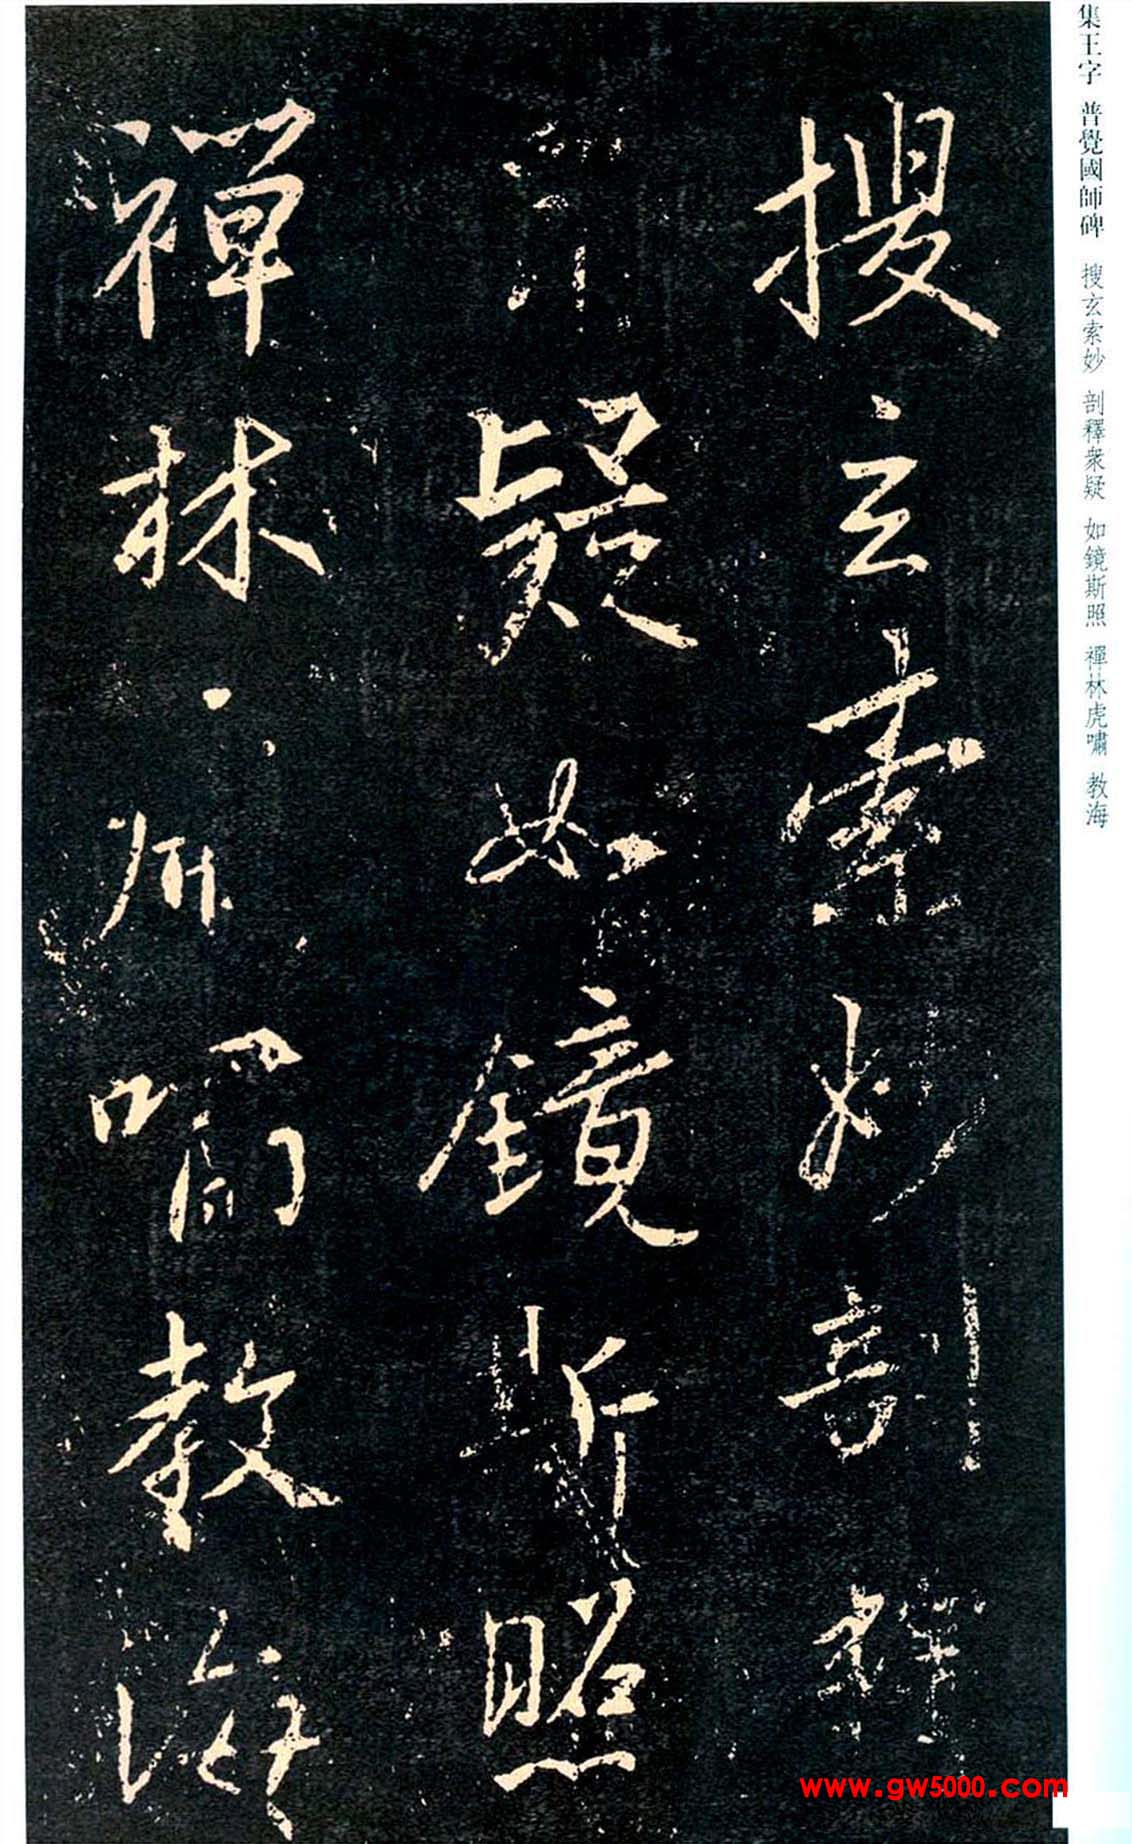 集王字 普覺國師碑 搜玄索妙 剖釋衆疑 如鏡斯照 禪林虎嘯 教海
搜玄索妙剖釋
衆疑如鏡斯照
禪林虎嘯教海
www.gw5000.com